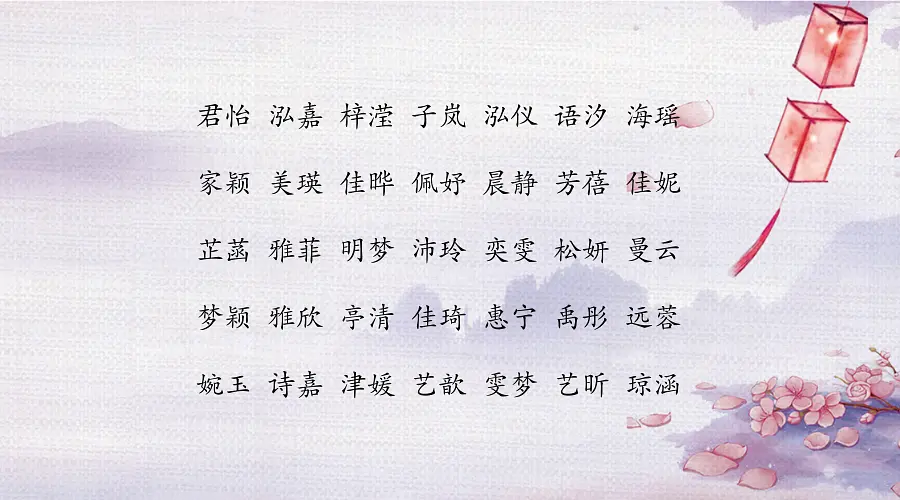 君怡 泓嘉 梓滢 子岚 泓仪 语汐 海瑶
家颖 美瑛 佳晔 佩妤 晨静 芳蓓 佳妮
芷菡 雅菲 明梦 沛玲 奕雯 松妍 曼云
梦颖 雅欣 亭清 佳琦 惠宁 禹彤 远蓉
婉玉 诗嘉 津媛 艺歆 雯梦 艺昕 琼涵